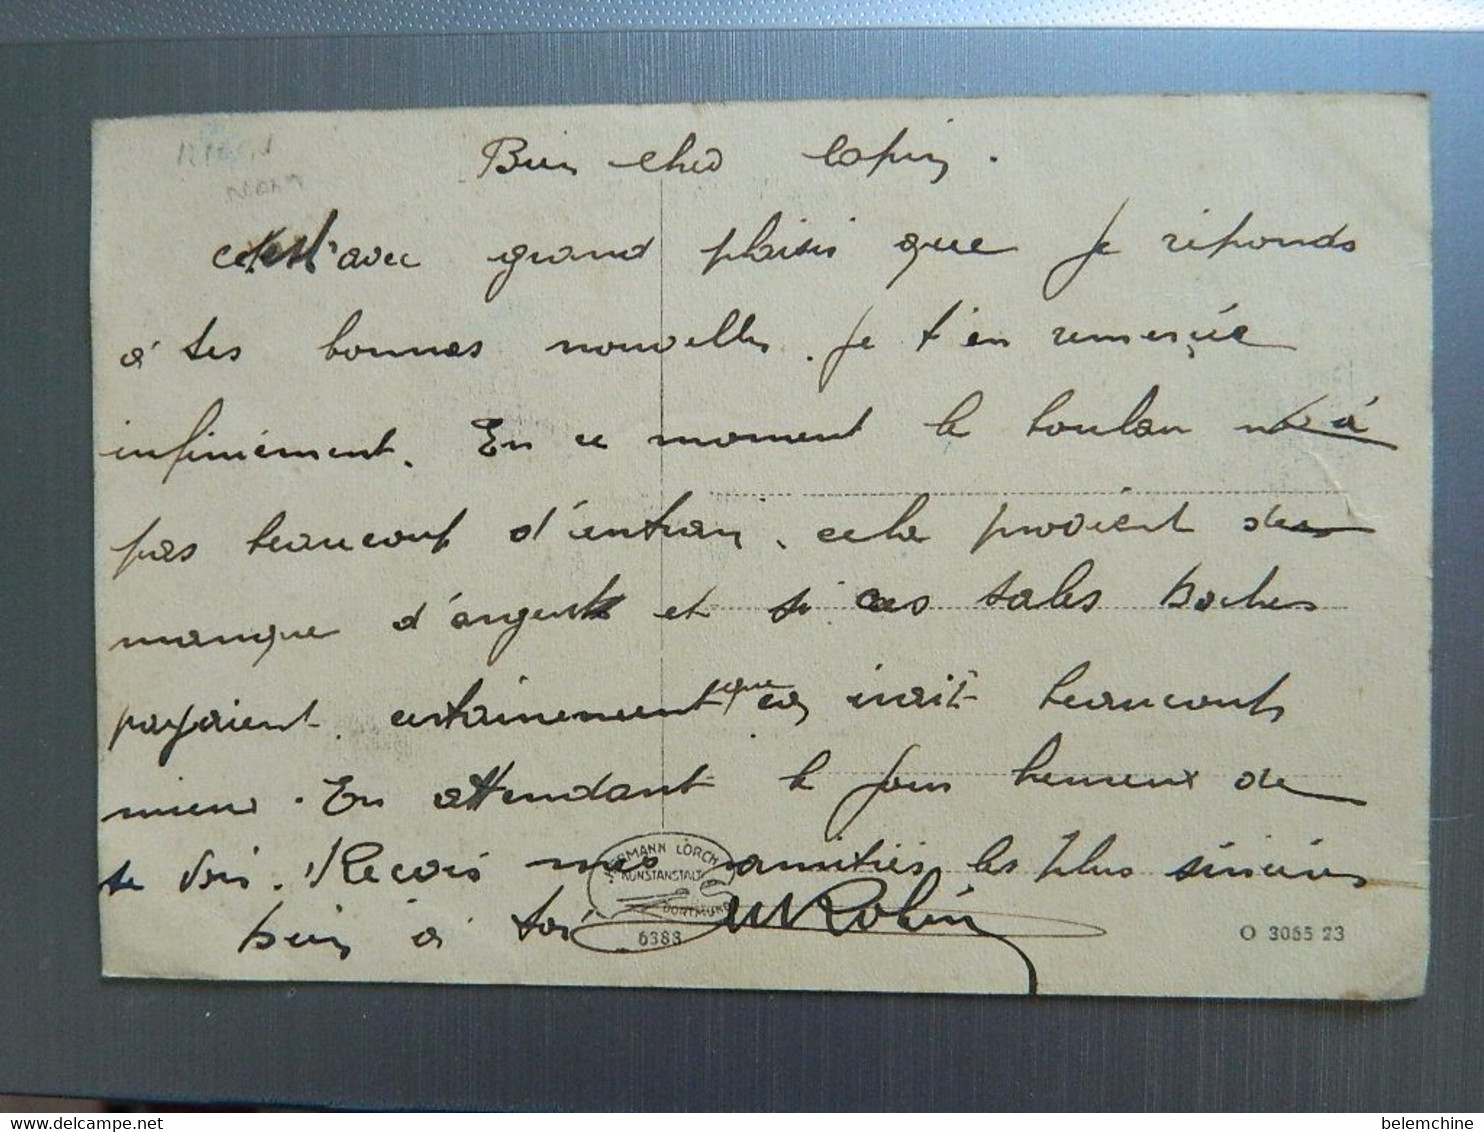 Bien cher Copin.
C'est avec grand plaisir que je réponds
à tes bonnes nouvelles. Je t'en remercie
infiniement. En ce moment le boulau n'a
pas beaucoup d'entrain. cela provient du
manque d'argent et si ces sales boches
payaient certainement que ça irait beaucoup
mieux. En attendant le jour heureux de
te voir. Recois mes amitiés les plus sincères
bien à toi MRobin
HERMANN LORCH
KUNSTANSTALT
DORTMUND
6383
O 3055 23
belemchine